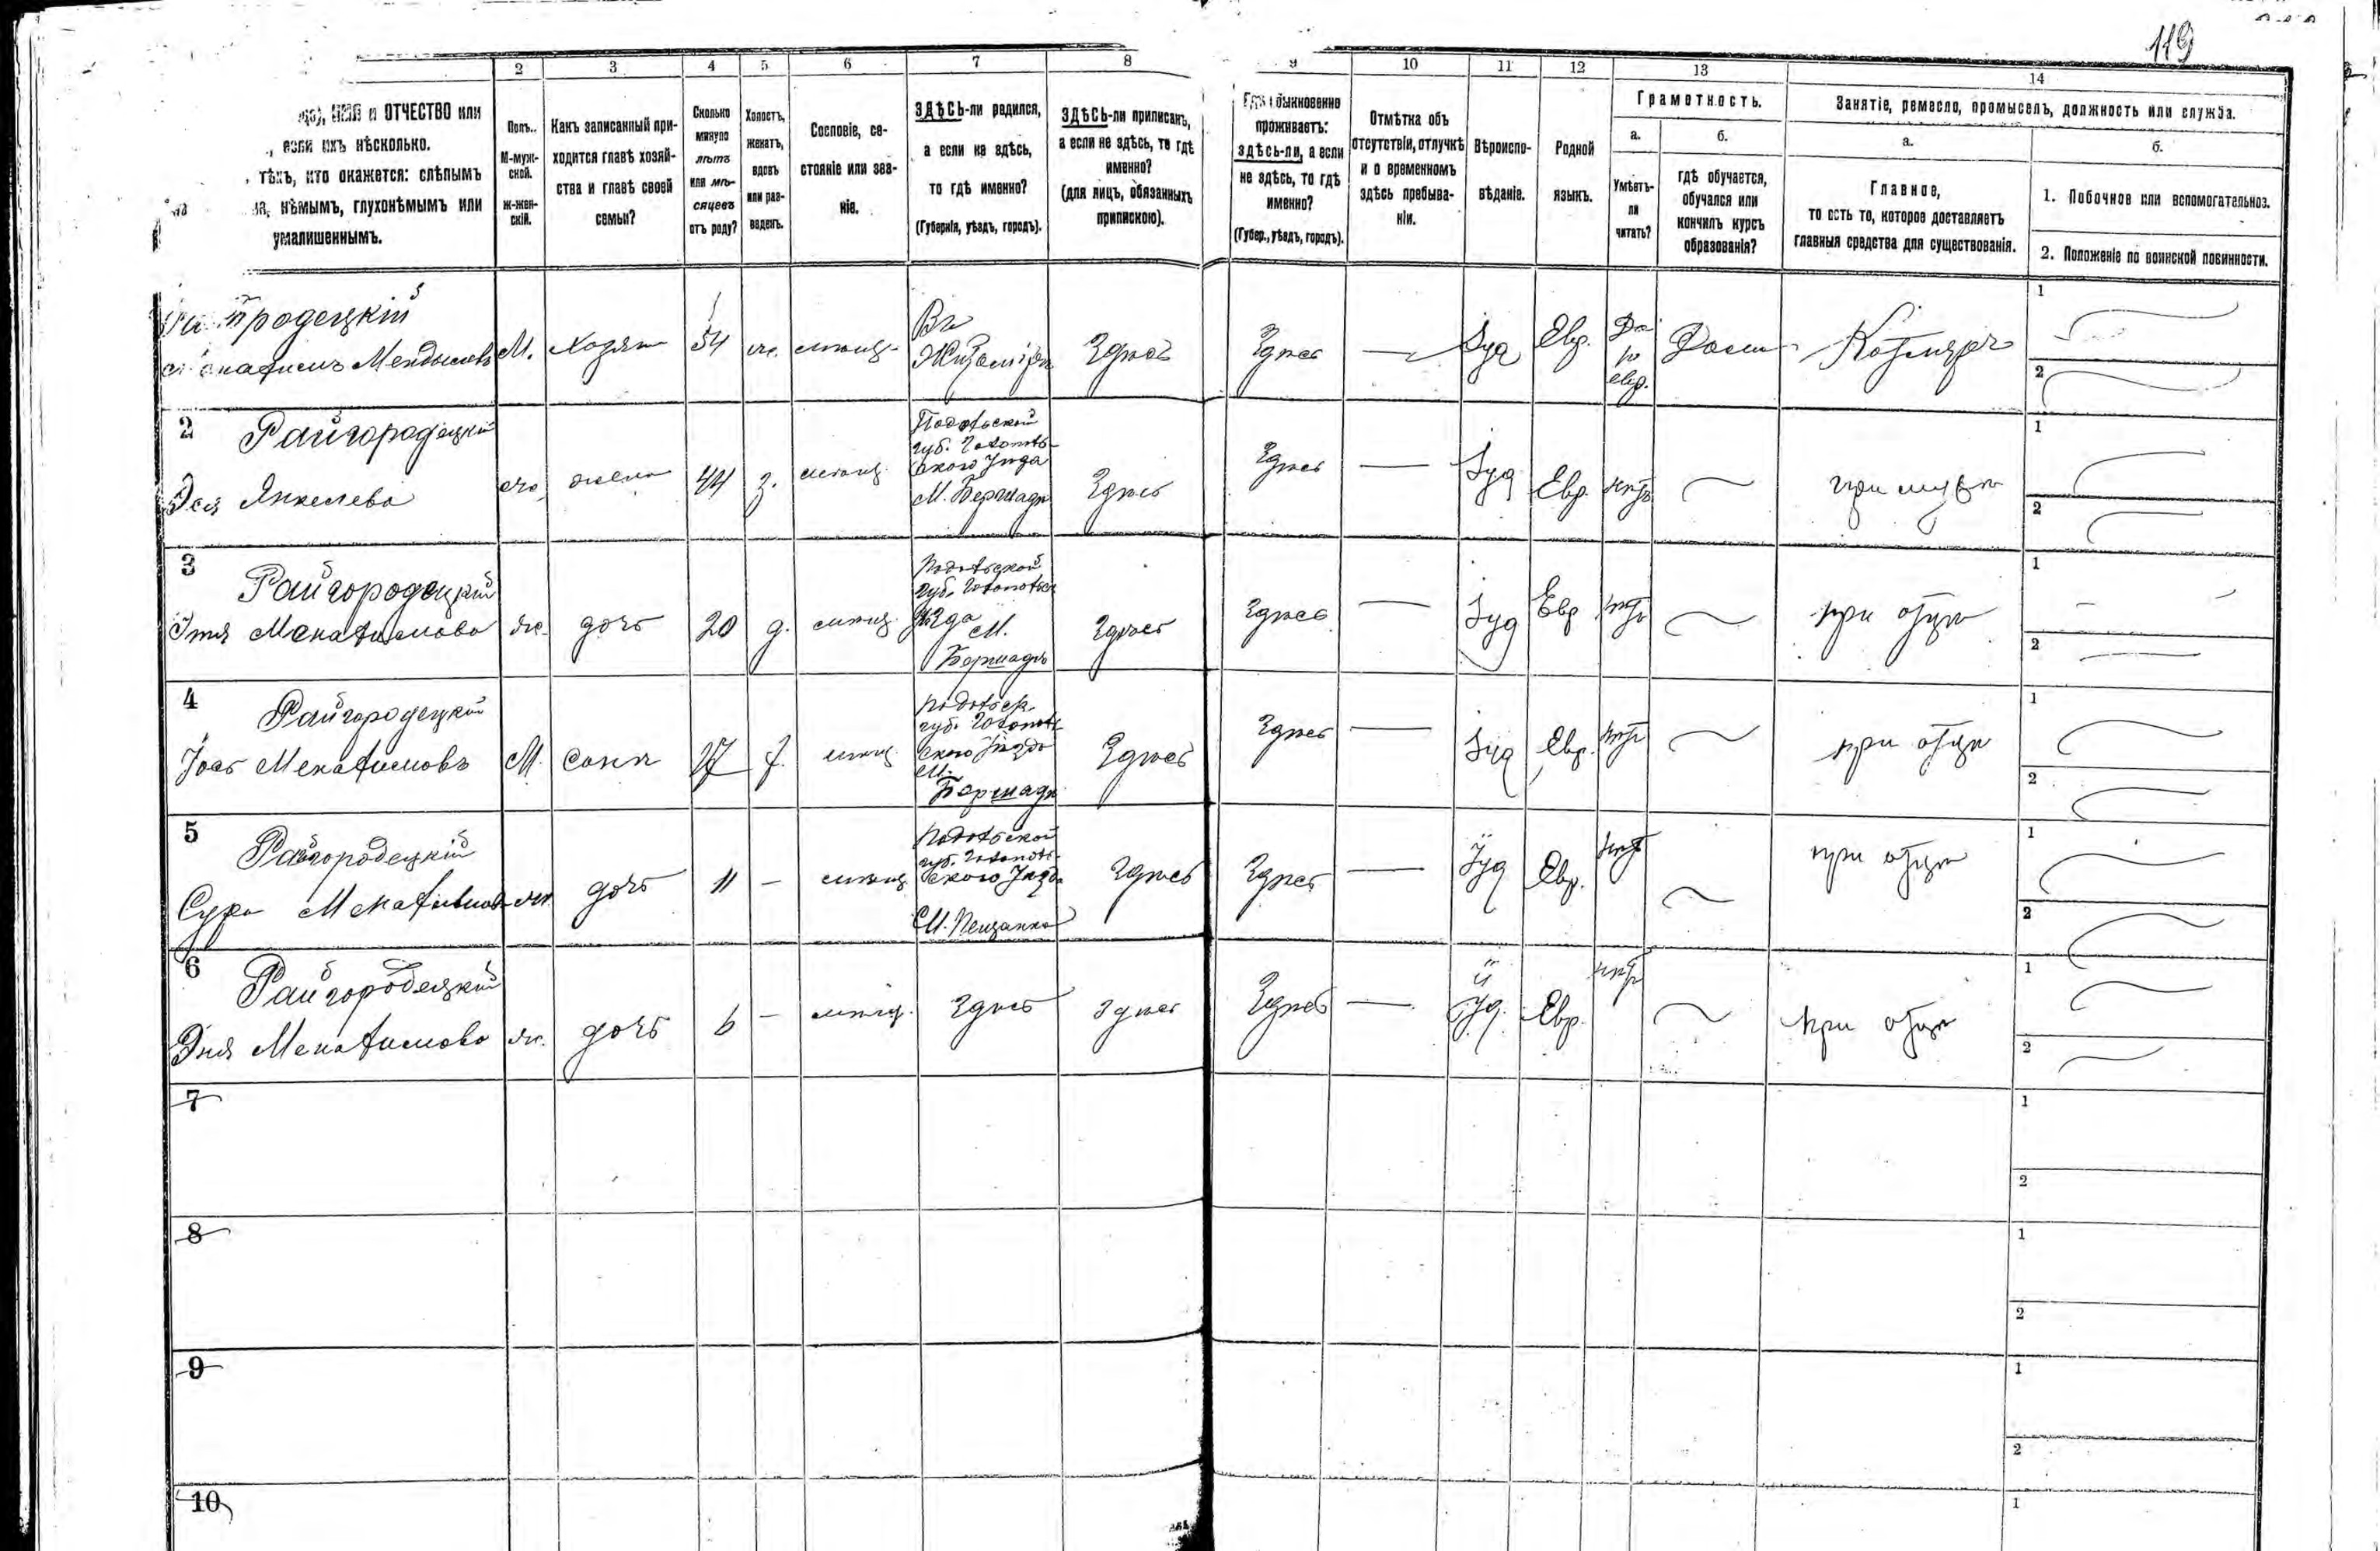 119
2 3 4 5 6 7 8 9 10 11 12 13 14
и ОТЧЕСТВО или
если ихъ нѣсколько.
тѣхъ, кто окажется: слѣпымъ
нѣмымъ, глухонѣмымъ или
умалишеннымъ.
Полъ.
М-муж-
ской.
ж-жен-
скій.
Какъ записанный при-
ходится главѣ хозяй-
ства и главѣ своей
семьи?
Сколько
минуло
лѣтъ
или мѣ-
сяцевъ
отъ роду?
Холостъ,
женатъ,
вдовъ
или раз-
веденъ.
Сословіе, со-
стояніе или зва-
ніе.
ЗДѢСЬ-ли родился,
а если не здѣсь,
то гдѣ именно?
(Губернія, уѣздъ, городъ).
ЗДѢСЬ-ли приписанъ,
а если не здѣсь, то гдѣ
именно?
(для лицъ, обязанныхъ
припискою).
Гдѣ обыкновенно
проживаетъ:
здѣсь-ли, а если
не здѣсь, то гдѣ
именно?
(Губер., уѣздъ, городъ).
Отмѣтка объ
отсутствіи, отлучкѣ
и о временномъ
здѣсь пребыва-
ніи.
Вѣроиспо-
вѣданіе.
Родной
языкъ.
Грамотность.
а.
Умѣетъ-
ли
читать?
б.
гдѣ обучается,
обучался или
кончилъ курсъ
образованія?
Занятіе, ремесло, промыселъ, должность или служба.
а.
Главное,
то есть то, которое доставляетъ
главныя средства для существованія.
б.
1. Побочное или вспомогательное.
2. Положеніе по воинской повинности.
городецкій
Мендылевъ М. хозяин 54 ж. мѣщ. Въ
Житомірѣ Здѣсь Здѣсь — Іуд Евр. Да
по
евр. Дома 1
2
2 Райгородецкій
Эся Янкелева ж. жена 44 з. мѣщ. Подольской
губ. Гайсинскаго
М. Бершадь Здѣсь Здѣсь — Іуд Евр. нѣтъ при мужѣ 1
2
3 Райгородецкій
ж. дочь 20 д. мѣщ. Подольской
губ.
уѣзда М.
Бершадь Здѣсь Здѣсь — Іуд Евр нѣтъ при отцѣ 1
2
4 Райгородецкій
М. сынъ 17 мѣщ. Подольск.
губ.
скаго уѣзда
М.
Бершадь Здѣсь Здѣсь — Іуд Евр. нѣтъ при отцѣ 1
2
5 Райгородецкій
Сура ж. дочь 11 — мѣщ. Подольской
губ.
скаго уѣзда
М. Песчанка Здѣсь Здѣсь — Іуд Евр. нѣтъ при отцѣ 1
2
6 Райгородецкій
Эня ж. дочь 6 — мѣщ. Здѣсь Здѣсь Здѣсь — Іуд. Евр. нѣтъ при отцѣ 1
2
7 1
2
8 1
2
9 1
2
10 1